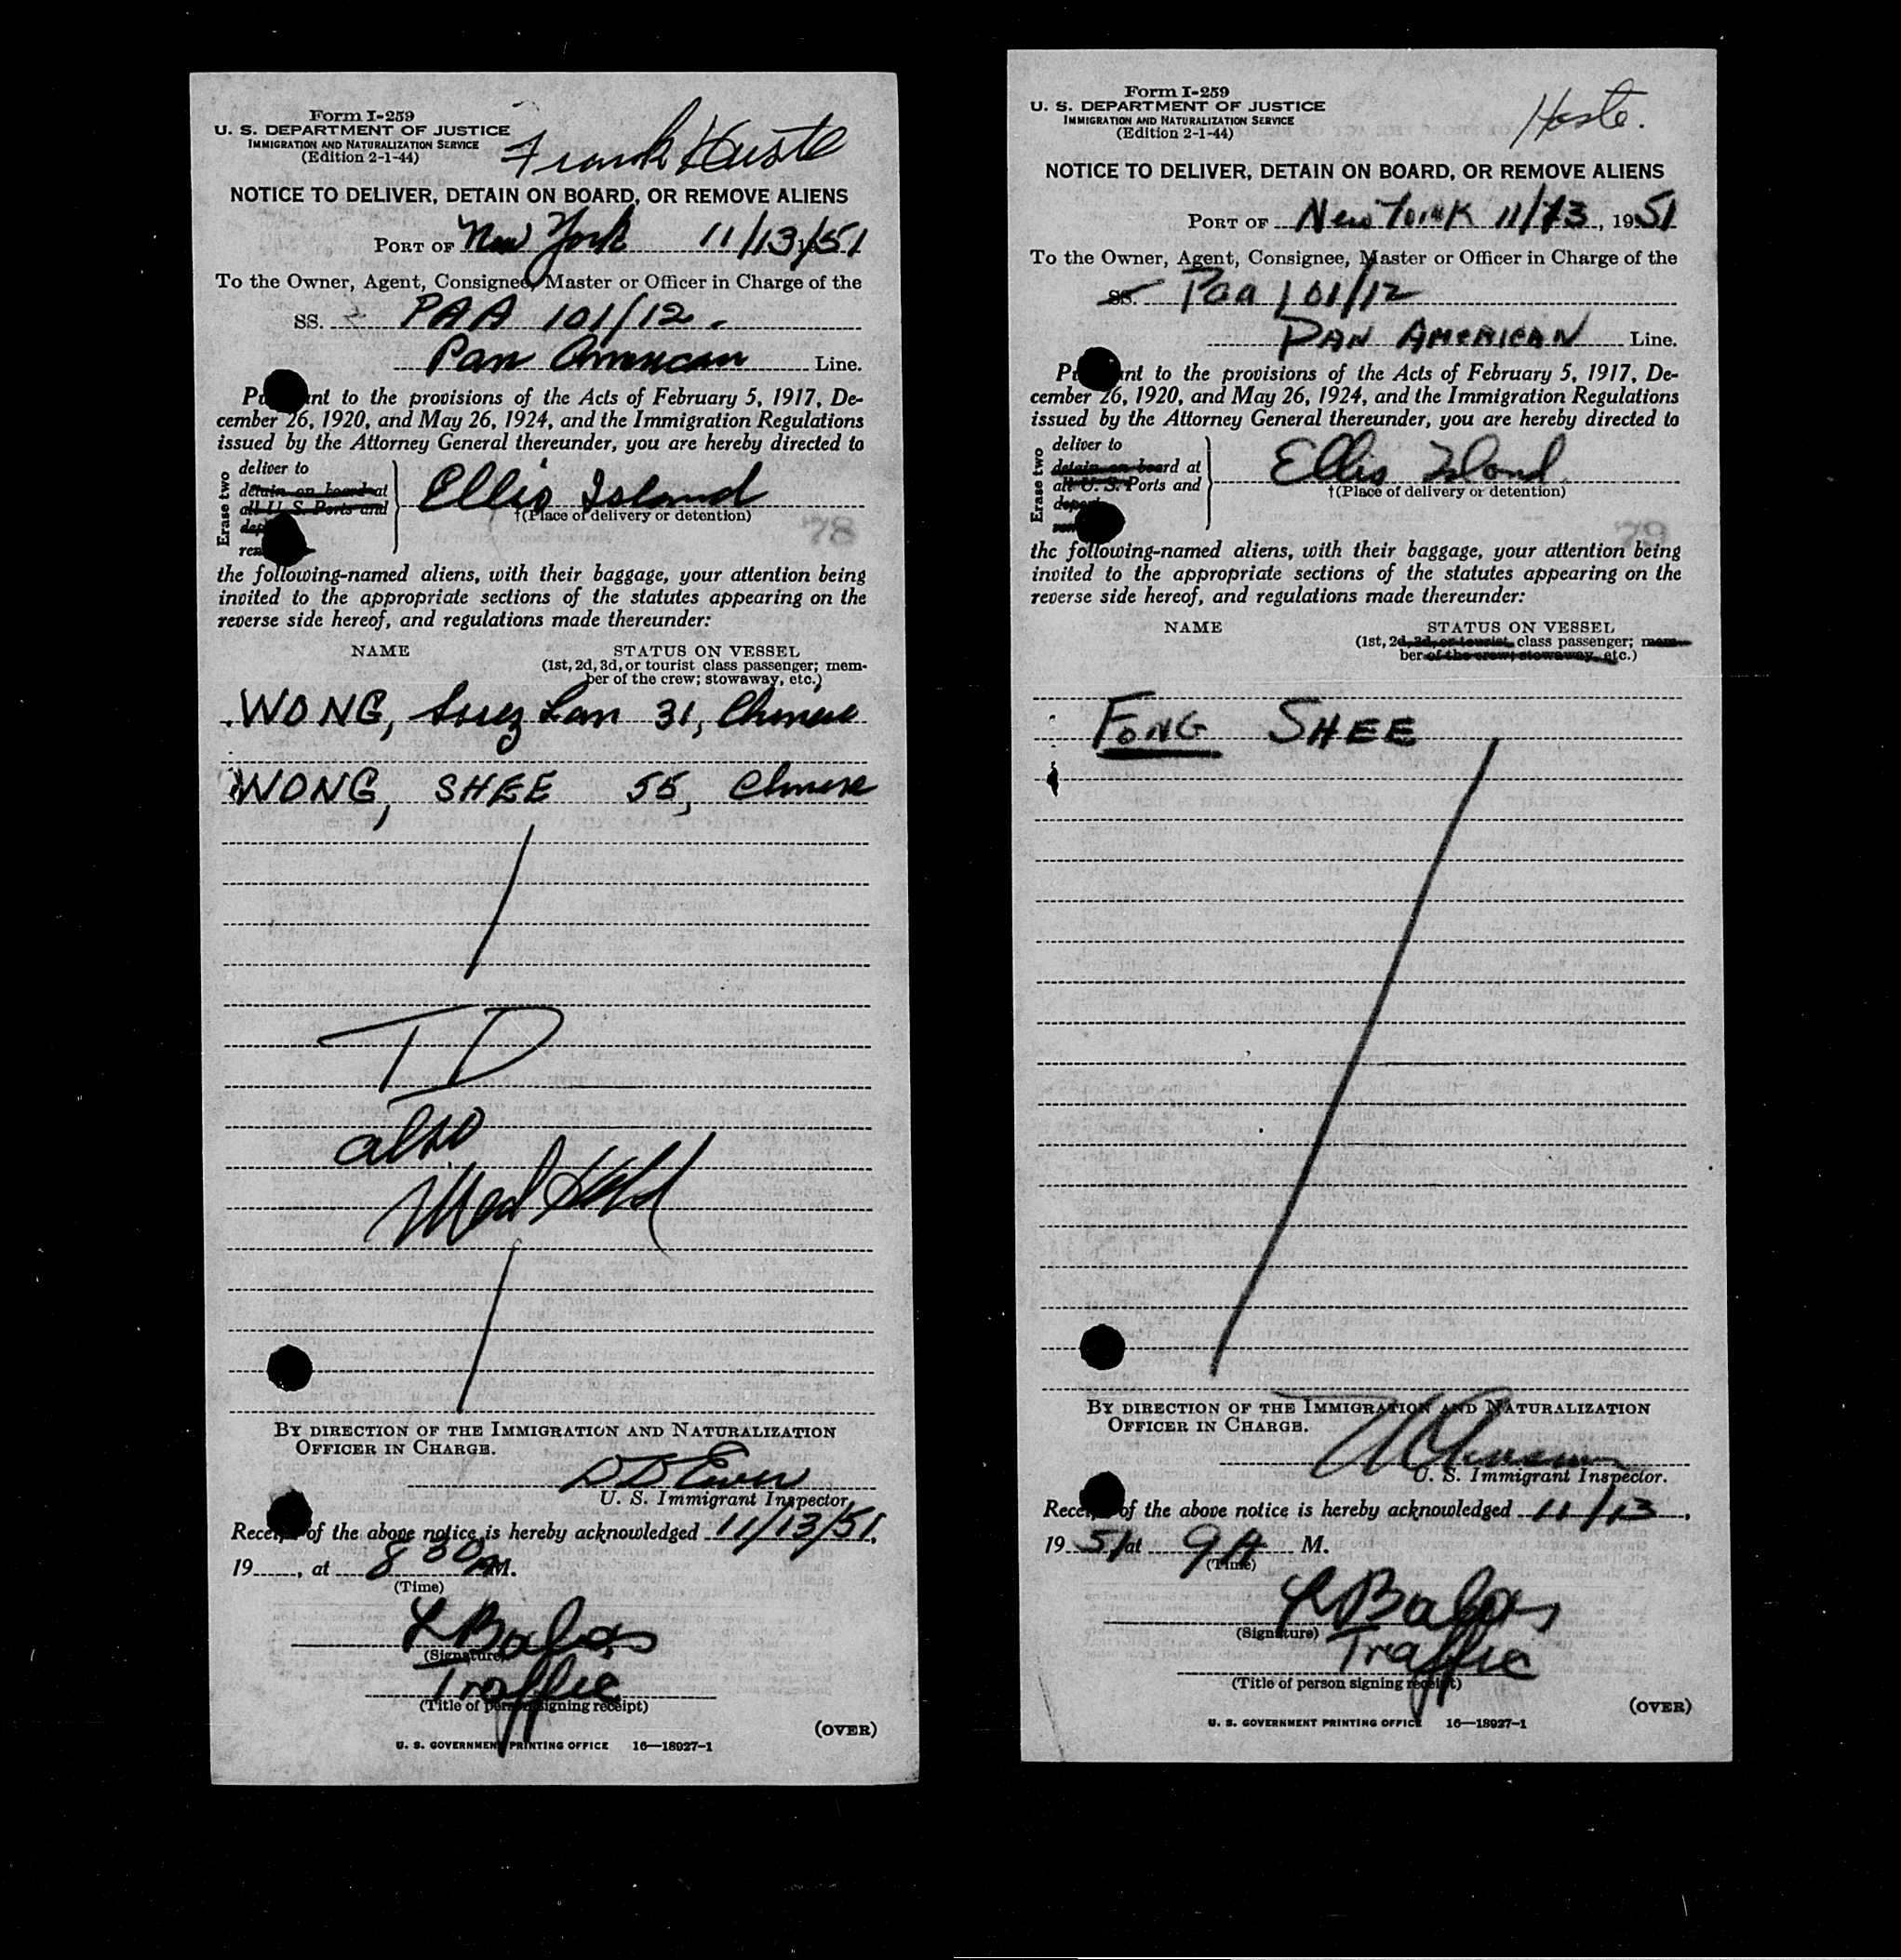 Form I-259
U. S. DEPARTMENT OF JUSTICE
IMMIGRATION AND NATURALIZATION SERVICE
(Edition 2-1-44)
Frank
NOTICE TO DELIVER, DETAIN ON BOARD, OR REMOVE ALIENS
PORT OF New York 11/13/51
To the Owner, Agent, Consignee, Master or Officer in Charge of the
SS. PAA 101/12.
Pan American Line.
to the provisions of the Acts of February 5, 1917, De-
cember 26, 1920, and May 26, 1924, and the Immigration Regulations
issued by the Attorney General thereunder, you are hereby directed to
Erase two
deliver to
detain on board at
all U. S. Ports and
Ellis Island
†(Place of delivery or detention)
78
the following-named aliens, with their baggage, your attention being
invited to the appropriate sections of the statutes appearing on the
reverse side hereof, and regulations made thereunder:
NAME STATUS ON VESSEL
(1st, 2d, 3d, or tourist class passenger; mem-
ber of the crew; stowaway, etc.)
WONG, Lan 31, Chinese
WONG, SHEE 55, Chinese
TD
also
Med Held
BY DIRECTION OF THE IMMIGRATION AND NATURALIZATION
OFFICER IN CHARGE.
U. S. Immigrant Inspector.
of the above notice is hereby acknowledged 11/13/51,
19 , at 8 30 AM.
(Time)
(Signature)
Traffic
(Title of person signing receipt)
(OVER)
U. S. GOVERNMENT PRINTING OFFICE 16—18927-1
Form I-259
U. S. DEPARTMENT OF JUSTICE
IMMIGRATION AND NATURALIZATION SERVICE
(Edition 2-1-44)
NOTICE TO DELIVER, DETAIN ON BOARD, OR REMOVE ALIENS
PORT OF New York 11/13, 1951
To the Owner, Agent, Consignee, Master or Officer in Charge of the
SS. Paa 101/12
PAN AMERICAN Line.
to the provisions of the Acts of February 5, 1917, De-
cember 26, 1920, and May 26, 1924, and the Immigration Regulations
issued by the Attorney General thereunder, you are hereby directed to
Erase two
deliver to
detain on board at
all U. S. Ports and
Ellis Island
†(Place of delivery or detention)
79
the following-named aliens, with their baggage, your attention being
invited to the appropriate sections of the statutes appearing on the
reverse side hereof, and regulations made thereunder:
NAME STATUS ON VESSEL
(1st, 2d, 3d, or tourist class passenger; mem-
ber of the crew; stowaway, etc.)
FONG SHEE
BY DIRECTION OF THE IMMIGRATION AND NATURALIZATION
OFFICER IN CHARGE.
U. S. Immigrant Inspector.
of the above notice is hereby acknowledged 11/13,
1951 at 9 A M.
(Time)
(Signature)
Traffic
(Title of person signing receipt)
(OVER)
U. S. GOVERNMENT PRINTING OFFICE 16—18927-1